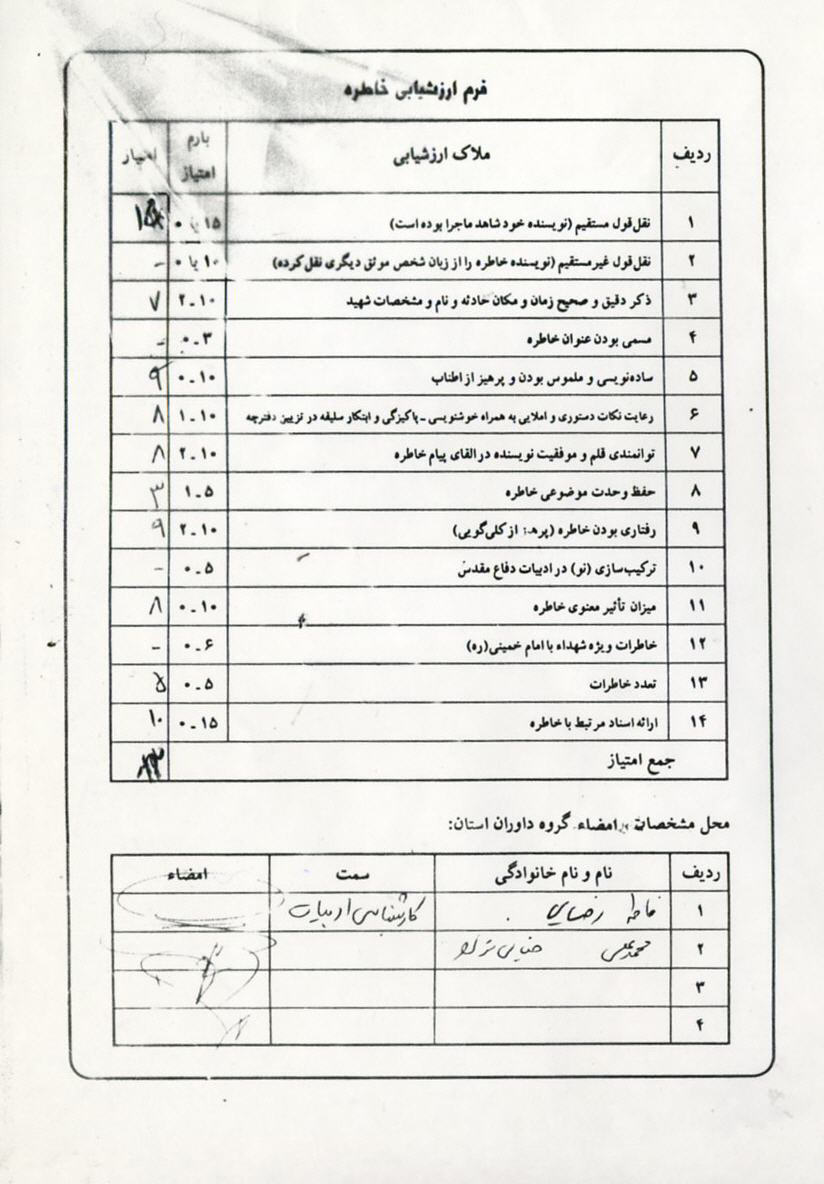 فرم ارزشیابی خاطره
ردیف ملاک ارزشیابی بارم امتیاز امتیاز
۱ نقل‌قول مستقیم (نویسنده خود شاهد ماجرا بوده است) ۱۵ یا ۰
۲ نقل‌قول غیرمستقیم (نویسنده خاطره را از زبان شخص موثق دیگری نقل کرده) ۱۰ یا ۰ -
۳ ذکر دقیق و صحیح زمان و مکان حادثه و نام و مشخصات شهید ۲-۱۰ ۷
۴ مسمی بودن عنوان خاطره ۰-۳ -
۵ ساده‌نویسی و ملموس بودن و پرهیز از اطناب ۰-۱۰ ۹
۶ رعایت نکات دستوری و املایی به همراه خوشنویسی - پاکیزگی و ابتکار سلیقه در تزیین دفترچه ۱-۱۰ ۸
۷ توانمندی قلم و موفقیت نویسنده در القای پیام خاطره ۲-۱۰ ۸
۸ حفظ وحدت موضوعی خاطره ۱-۵ ۳
۹ رفتاری بودن خاطره (پرهیز از کلی‌گویی) ۲-۱۰ ۹
۱۰ ترکیب‌سازی (نو) در ادبیات دفاع مقدس ۰-۵ -
۱۱ میزان تأثیر معنوی خاطره ۰-۱۰ ۸
۱۲ خاطرات ویژه شهداء با امام خمینی(ره) ۰-۶ -
۱۳ تعدد خاطرات ۰-۵ ۵
۱۴ ارائه اسناد مرتبط با خاطره ۰-۱۵ ۱۰
جمع امتیاز
محل مشخصات و امضاء گروه داوران استان:
ردیف نام و نام خانوادگی سمت امضاء
۱ فاطمه رضایی کارشناس ادبیات
۲ محمدعلی
۳
۴